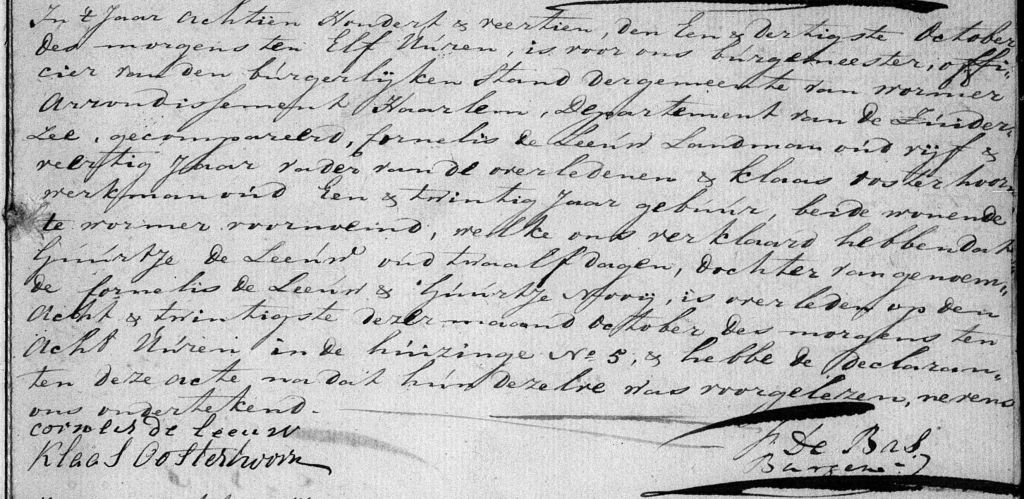 In 't Jaar Achtien Hondert & veertien, den Een & dertigste October
des morgens ten Elf Uúren, is voor ons búrgemeester, offi=
cier van den búrgerlijken Stand der gemeente van wormer
Arrondissement Haarlem, Departement van de Zúider=
Zee, gecompareerd, Cornelis de Leeúw Landman oúd vijf &
veertig Jaar vader van de overledenen & Klaas oosterhoorn
werkman oúd Een & twintig Jaar gebúúr, beide wonende
te wormer voornoemd, welke ons verklaard hebben dat
Gúúrtje de Leeúw oúd twaalf dagen, dochter van genoem=
de Cornelis de Leeúw & Gúúrtje Nooij, is overleden op den
Acht & twintigste dezer maand October des morgens ten
Acht Uúren in de húizinge No 5, & hebbe de Declaran=
ten deze acte na dat hún dezelve was voorgelezen, nevens
ons ondertekend.
cornelis de leeuw
Klaas Oosterhoorn
De Bas
Burgem